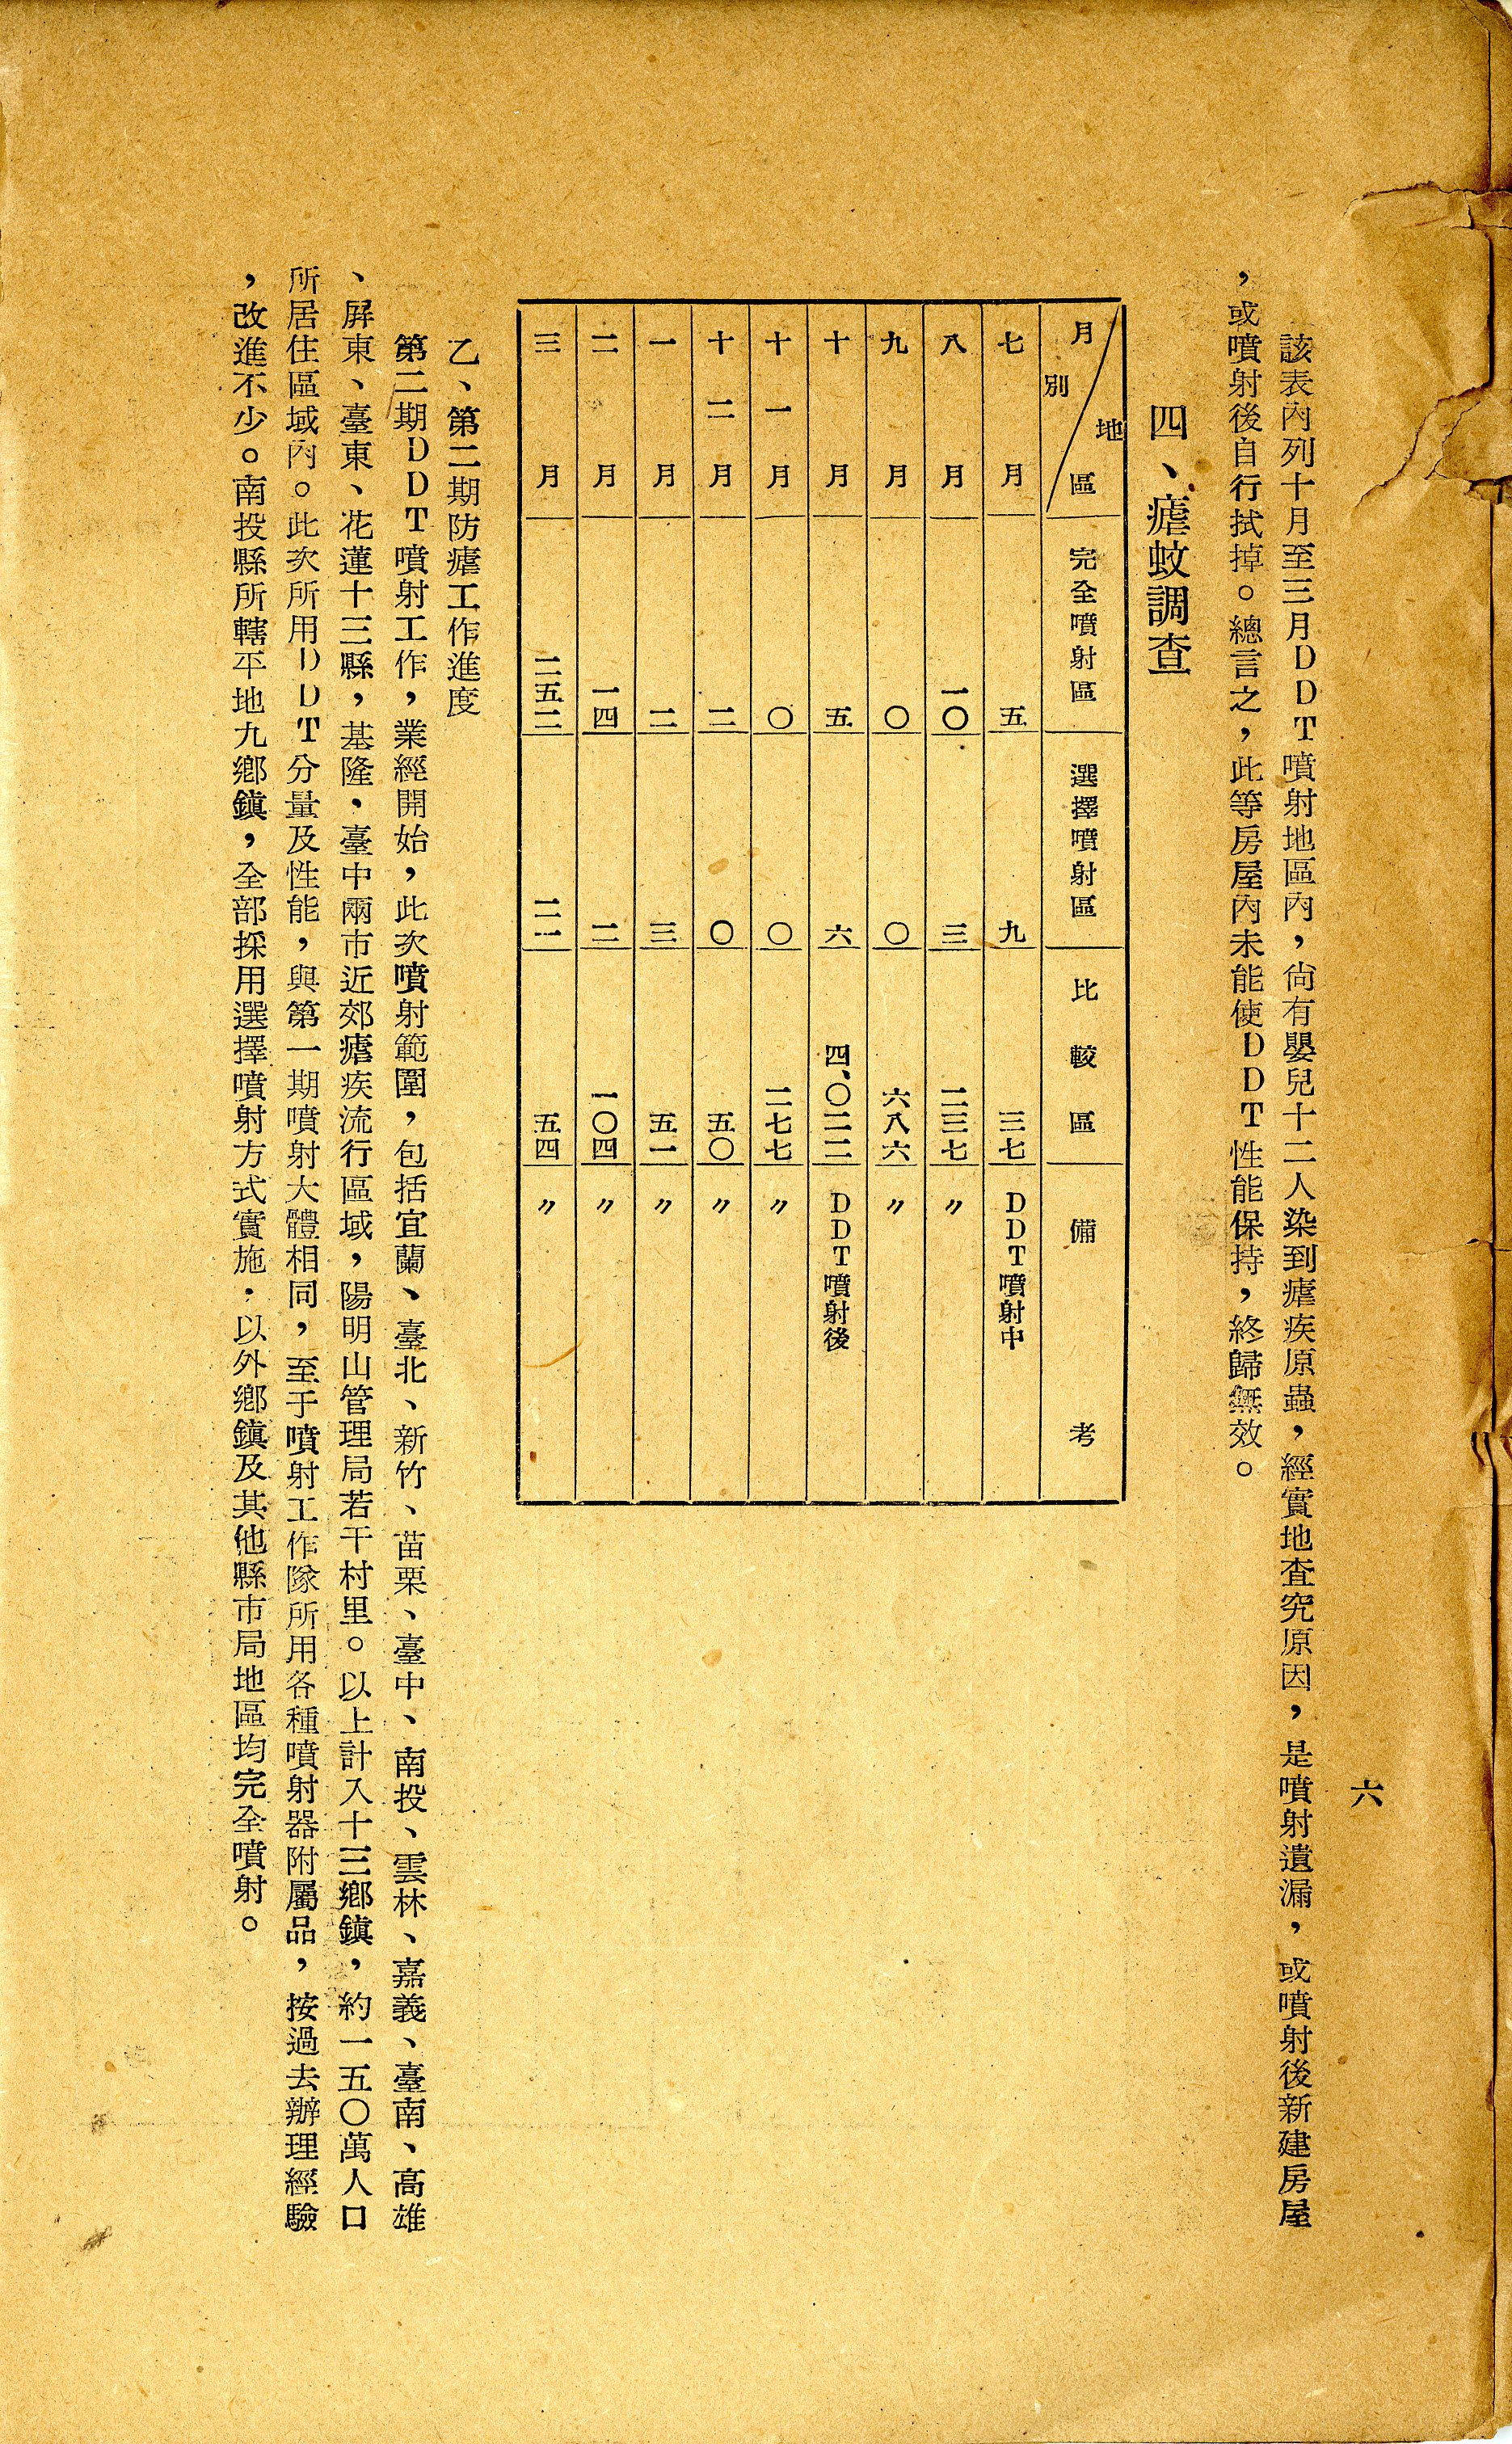 六
該表內列十月至三月DDT噴射地區內，尙有嬰兒十二人染到瘧疾原蟲，經實地查究原因，是噴射遺漏，或噴射後新建房屋
，或噴射後自行拭掉。總言之，此等房屋內未能使DDT性能保持，終歸無效。
四、瘧蚊調查
月別 地區 完全噴射區 選擇噴射區 比較區 備考
七月 五 九 三七 DDT噴射中
八月 一〇 三 二三七 〃
九月 〇 〇 六八六 〃
十月 五 六 四、〇二二 DDT噴射後
十一月 〇 〇 二七七 〃
十二月 二 〇 五〇 〃
一月 二 三 五一 〃
二月 一四 二 一〇四 〃
三月 二五二 二一 五四 〃
乙、第二期防瘧工作進度
第二期DDT噴射工作，業經開始，此次噴射範圍，包括宜蘭、臺北、新竹、苗栗、臺中、南投、雲林、嘉義、臺南、高雄
、屏東、臺東、花蓮十三縣，基隆，臺中兩市近郊瘧疾流行區域，陽明山管理局若干村里。以上計入十三鄉鎮，約一五〇萬人口
所居住區域內。此次所用DDT分量及性能，與第一期噴射大體相同，至于噴射工作隊所用各種噴射器附屬品，按過去辦理經驗
，改進不少。南投縣所轄平地九鄉鎮，全部採用選擇噴射方式實施，以外鄉鎮及其他縣市局地區均完全噴射。